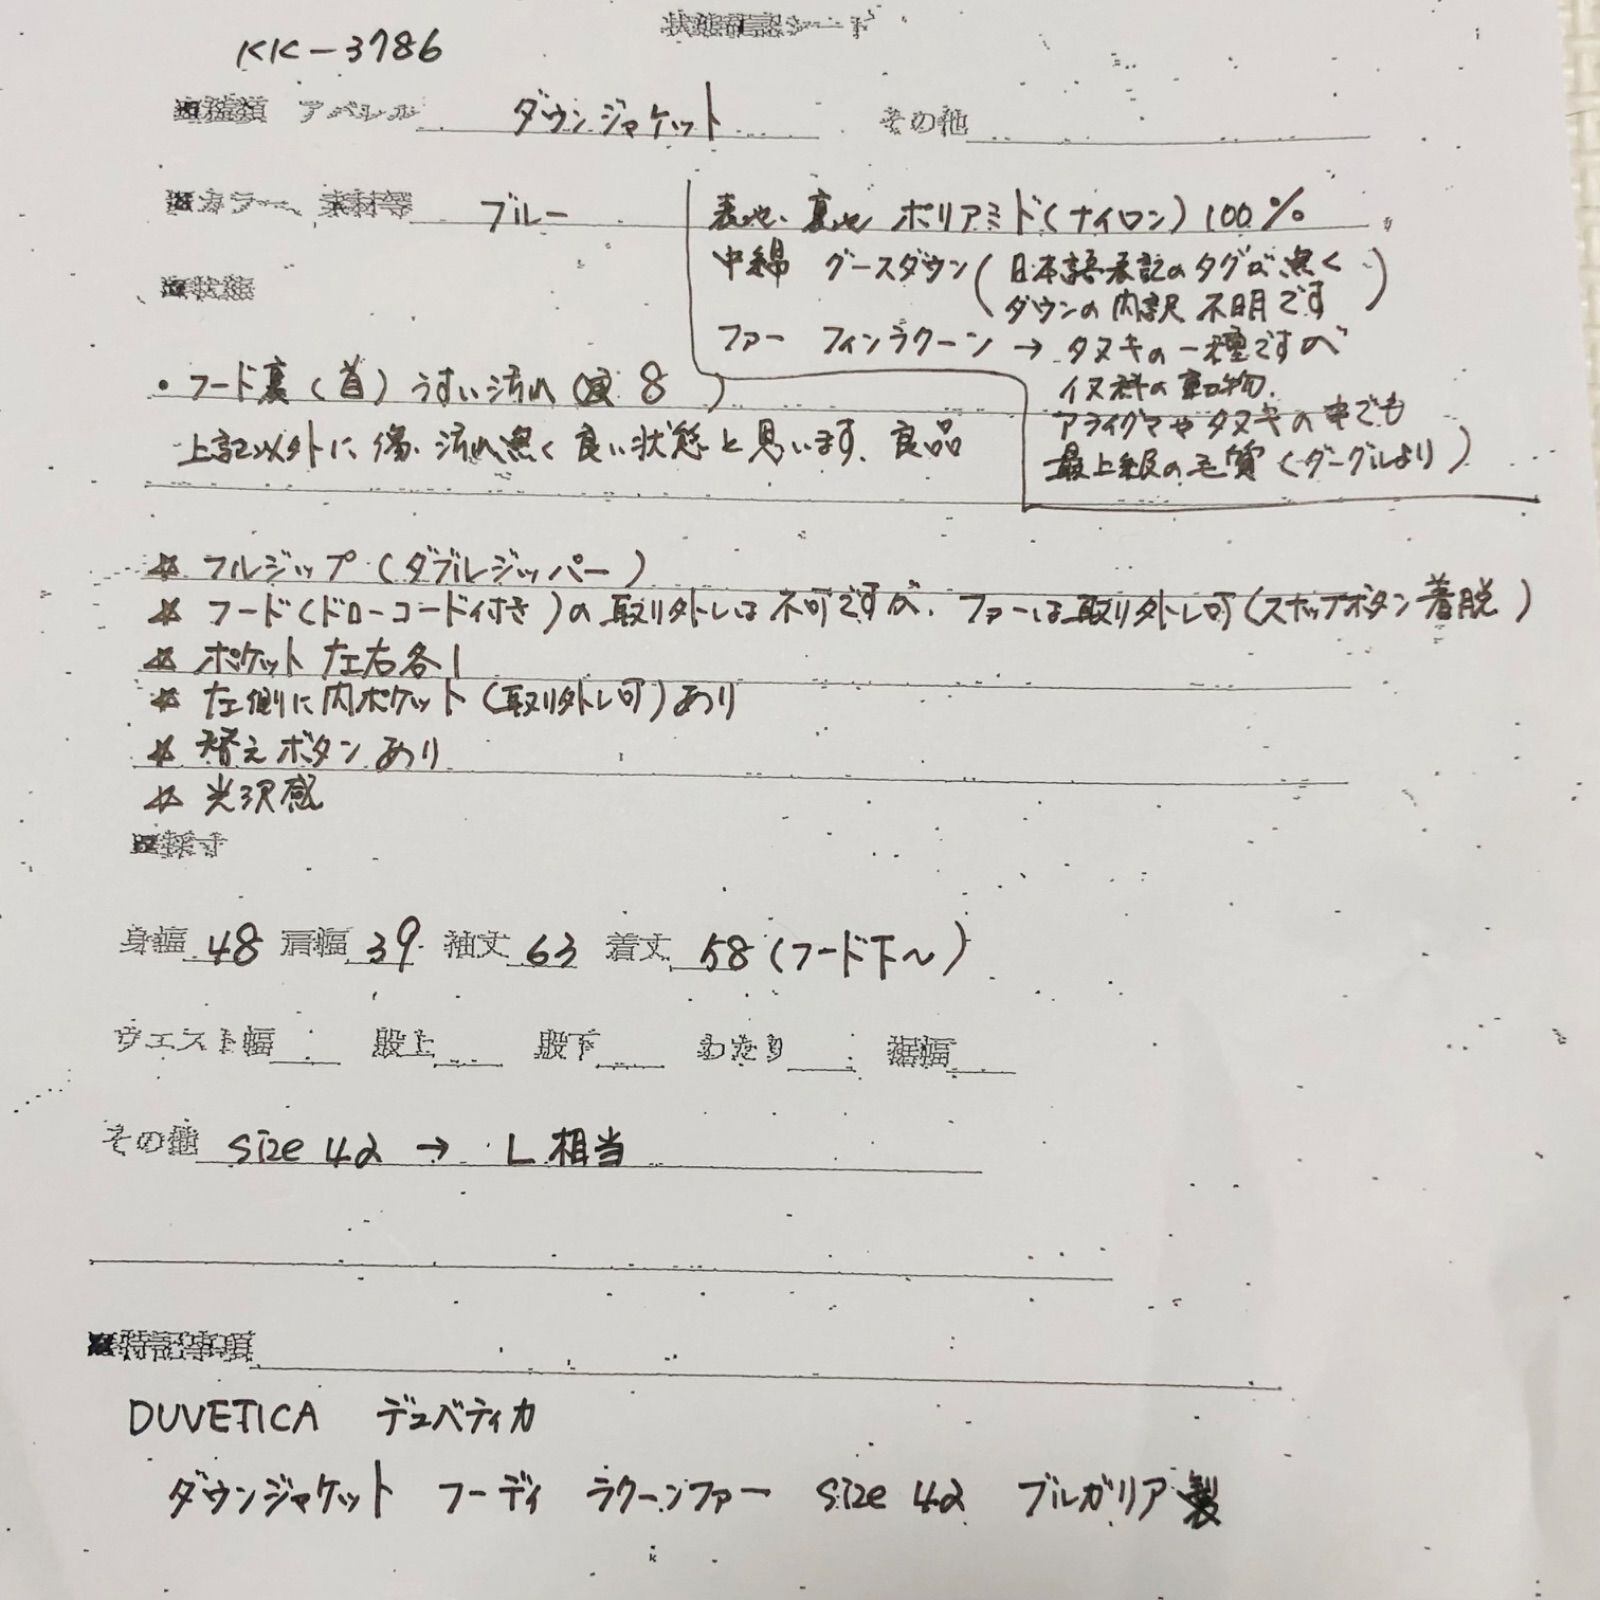 状態確認シート
KK-3786
■種類 アパレル ダウンジャケット その他
■カラー、素材等 ブルー
表地、裏地 ポリアミド(ナイロン)100%
中綿 グースダウン(日本語表記のタグが無く
ダウンの内訳 不明です)
ファー フィンラクーン → タヌキの一種ですが
イヌ科の動物.
アライグマやタヌキの中でも
最上級の毛質(グーグルより)
■状態
・フード裏(首)うすい汚れ(写 8 )
上記以外に傷、汚れ無く良い状態と思います. 良品
☆ フルジップ(ダブルジッパー)
☆ フード(ドローコード付き)の取り外しは不可ですが、ファーは取り外し可(スナップボタン着脱)
☆ ポケット 左右各1
☆ 左側に内ポケット(取り外し可)あり
☆ 替えボタンあり
☆ 光沢感
■採寸
身幅 48 肩幅 39 袖丈 63 着丈 58(フード下〜)
ウエスト幅 股上 股下 わたり 裾幅
その他 size 42 → L相当
■特記事項
DUVETICA デュベティカ
ダウンジャケット フーディ ラクーンファー size 42 ブルガリア製